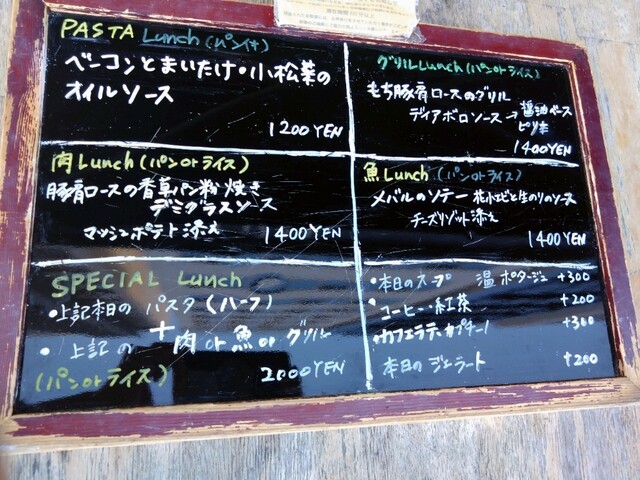 PASTA Lunch (パン付)
ベーコンとまいたけ・小松菜の
オイルソース
1200YEN
グリルLunch (パンorライス)
もち豚肩ロースのグリル
ディアボロソース → 醤油ベース
ピリ辛
1400YEN
肉Lunch (パンorライス)
豚肩ロースの香草パン粉焼き
デミグラスソース
マッシュポテト添え 1400YEN
魚Lunch (パンorライス)
メバルのソテー 花エビと生のりのソース
チーズリゾット添え
1400YEN
SPECIAL Lunch
・上記本日の パスタ (ハーフ)
+
・上記の 肉 or 魚 or グリル
(パンorライス) 2000YEN
・本日のスープ 温 ポタージュ +300
・コーヒー・紅茶 +200
・カフェラテ・カプチーノ +300
本日の ジェラート +200